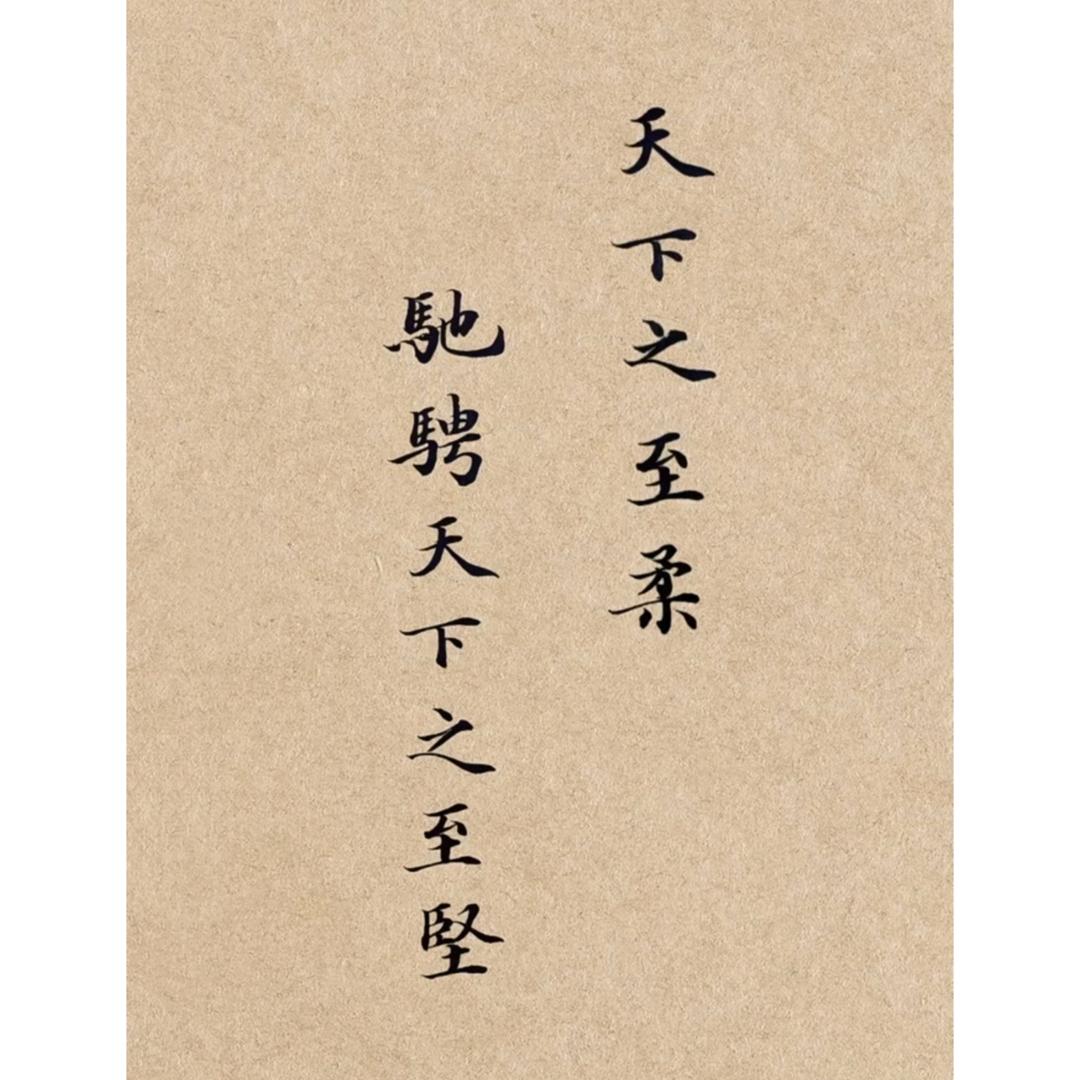 天下之至柔
馳騁天下之至堅